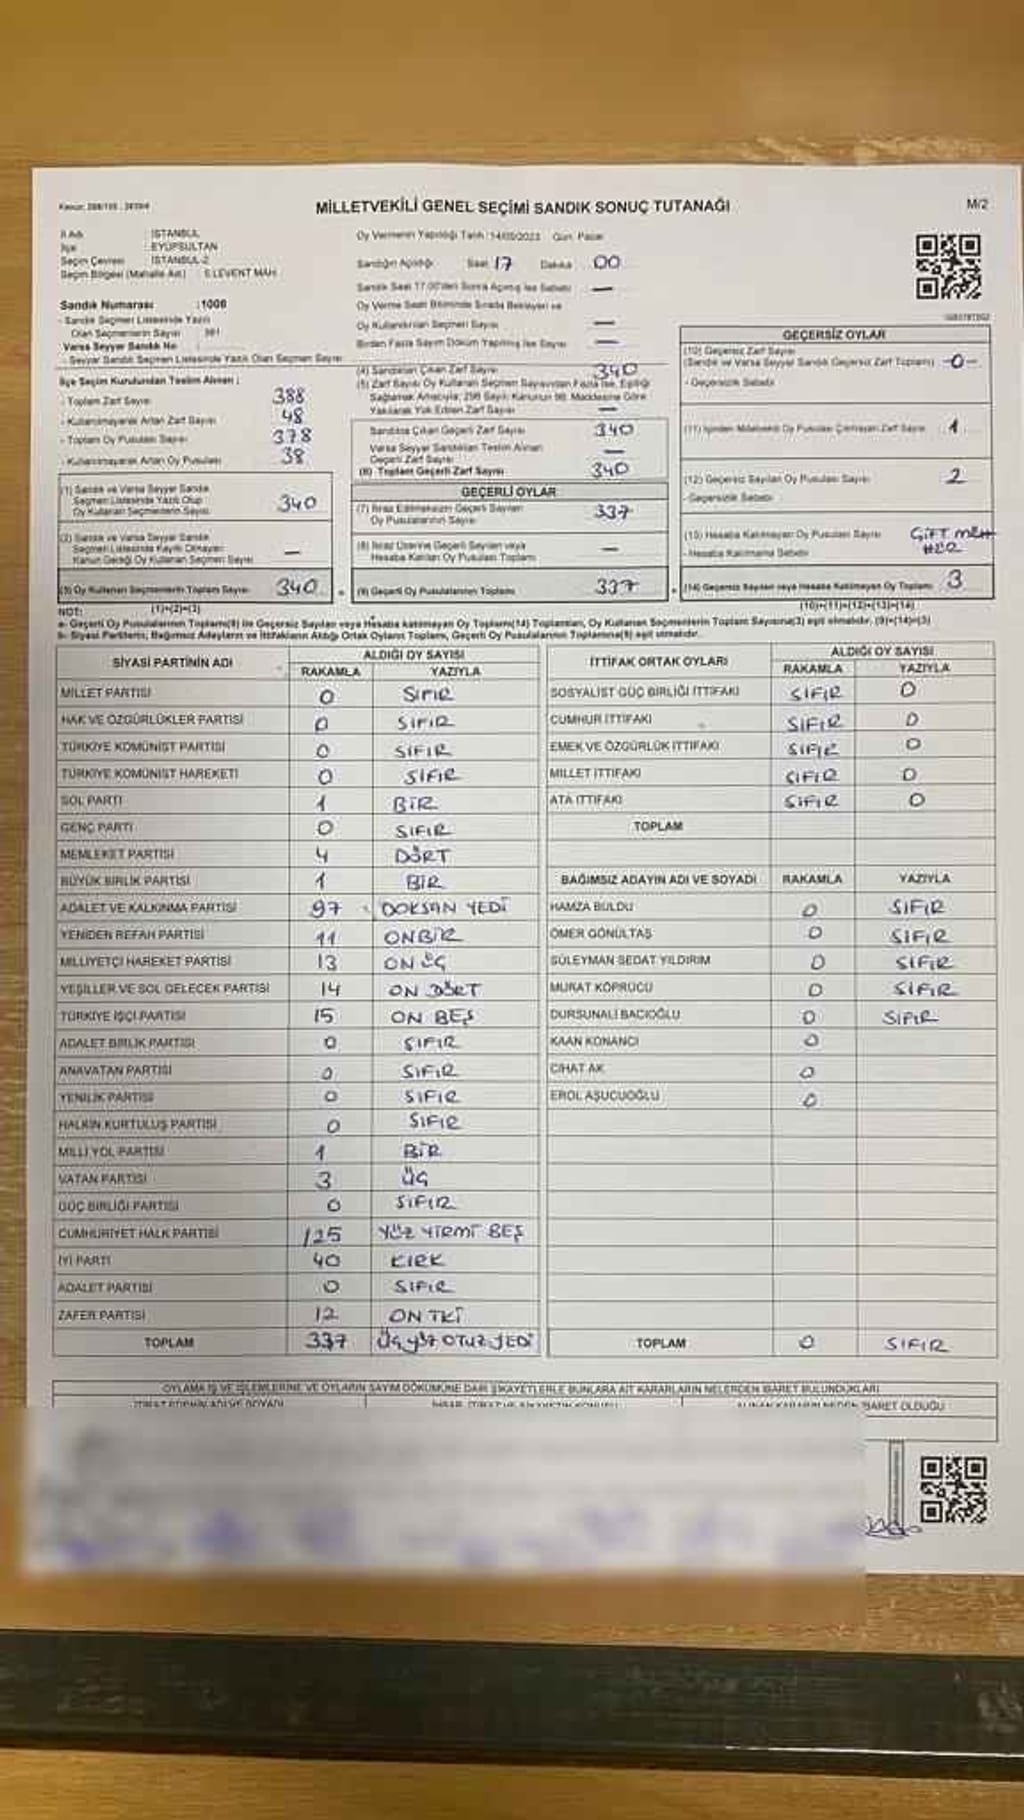 MİLLETVEKİLİ GENEL SEÇİMİ SANDIK SONUÇ TUTANAĞI
M/2
İl Adı : İSTANBUL
İlçe : EYÜPSULTAN
Seçim Çevresi : İSTANBUL-2
Seçim Bölgesi (Mahalle Adı) : 5.LEVENT MAH.
Sandık Numarası : 1006
- Sandık Seçmen Listesinde Yazılı
Olan Seçmenlerin Sayısı : 381
Varsa Seyyar Sandık No :
- Seyyar Sandık Seçmen Listesinde Yazılı Olan Seçmen Sayısı
Oy Vermenin Yapıldığı Tarih :14/05/2023 Gün: Pazar
Sandığın Açıldığı Saat 17 Dakika 00
Sandık Saat 17.00'den Sonra Açılmış İse Sebebi —
Oy Verme Saati Bitiminde Sırada Bekleyen ve
Oy Kullandırılan Seçmen Sayısı —
Birden Fazla Sayım Döküm Yapılmış İse Sayısı —
İlçe Seçim Kurulundan Teslim Alınan ;
- Toplam Zarf Sayısı 388
- Kullanılmayarak Artan Zarf Sayısı 48
- Toplam Oy Pusulası Sayısı 378
- Kullanılmayarak Artan Oy Pusulası 38
(1) Sandık ve Varsa Seyyar Sandık
Seçmen Listesinde Yazılı Olup
Oy Kullanan Seçmenlerin Sayısı 340
(2) Sandık ve Varsa Seyyar Sandık
Seçmen Listesinde Kayıtlı Olmayan
Kanun Gereği Oy Kullanan Seçmen Sayısı —
(3) Oy Kullanan Seçmenlerin Toplam Sayısı 340
(1)+(2)=(3)
(4) Sandıktan Çıkan Zarf Sayısı 340
(5) Zarf Sayısı Oy Kullanan Seçmen Sayısından Fazla İse, Eşitliği
Sağlamak Amacıyla; 298 Sayılı Kanunun 98. Maddesine Göre
Yakılarak Yok Edilen Zarf Sayısı —
Sandıkta Çıkan Geçerli Zarf Sayısı 340
Varsa Seyyar Sandıktan Teslim Alınan
Geçerli Zarf Sayısı —
(6) Toplam Geçerli Zarf Sayısı 340
GEÇERLİ OYLAR
(7) İtiraz Edilmeksizin Geçerli Sayılan
Oy Pusulalarının Sayısı 337
(8) İtiraz Üzerine Geçerli Sayılan veya
Hesaba Katılan Oy Pusulası Toplamı —
(9) Geçerli Oy Pusulalarının Toplamı 337
GEÇERSİZ OYLAR
(10) Geçersiz Zarf Sayısı
(Sandık ve Varsa Seyyar Sandık Geçersiz Zarf Toplamı) -0-
- Geçersizlik Sebebi
(11) İçinden Milletvekili Oy Pusulası Çıkmayan Zarf Sayısı 1
(12) Geçersiz Sayılan Oy Pusulası Sayısı 2
- Geçersizlik Sebebi
(13) Hesaba Katılmayan Oy Pusulası Sayısı
- Hesaba Katılmama Sebebi
ÇİFT MÜH
HÜR
(14) Geçersiz Sayılan veya Hesaba Katılmayan Oy Toplamı 3
(10)+(11)+(12)+(13)=(14)
NOT:
a- Geçerli Oy Pusulalarının Toplamı(9) ile Geçersiz Sayılan veya Hesaba katılmayan Oy Toplamı(14) Toplamları, Oy Kullanan Seçmenlerin Toplam Sayısına(3) eşit olmalıdır. (9)+(14)=(3)
b- Siyasi Partilerin, Bağımsız Adayların ve İttifakların Aldığı Ortak Oyların Toplamı, Geçerli Oy Pusulalarının Toplamına(9) eşit olmalıdır.
SİYASİ PARTİNİN ADI ALDIĞI OY SAYISI
RAKAMLA YAZIYLA
MİLLET PARTİSİ 0 SIFIR
HAK VE ÖZGÜRLÜKLER PARTİSİ 0 SIFIR
TÜRKİYE KOMÜNİST PARTİSİ 0 SIFIR
TÜRKİYE KOMÜNİST HAREKETİ 0 SIFIR
SOL PARTİ 1 BİR
GENÇ PARTİ 0 SIFIR
MEMLEKET PARTİSİ 4 DÖRT
BÜYÜK BİRLİK PARTİSİ 1 BİR
ADALET VE KALKINMA PARTİSİ 97 DOKSAN YEDİ
YENİDEN REFAH PARTİSİ 11 ONBİR
MİLLİYETÇİ HAREKET PARTİSİ 13 ON ÜÇ
YEŞİLLER VE SOL GELECEK PARTİSİ 14 ON DÖRT
TÜRKİYE İŞÇİ PARTİSİ 15 ON BEŞ
ADALET BİRLİK PARTİSİ 0 SIFIR
ANAVATAN PARTİSİ 0 SIFIR
YENİLİK PARTİSİ 0 SIFIR
HALKIN KURTULUŞ PARTİSİ 0 SIFIR
MİLLİ YOL PARTİSİ 1 BİR
VATAN PARTİSİ 3 ÜÇ
GÜÇ BİRLİĞİ PARTİSİ 0 SIFIR
CUMHURİYET HALK PARTİSİ 125 YÜZ YİRMİ BEŞ
İYİ PARTİ 40 KIRK
ADALET PARTİSİ 0 SIFIR
ZAFER PARTİSİ 12 ON İKİ
TOPLAM 337 ÜÇ YÜZ OTUZ YEDİ
İTTİFAK ORTAK OYLARI ALDIĞI OY SAYISI
RAKAMLA YAZIYLA
SOSYALİST GÜÇ BİRLİĞİ İTTİFAKI SIFIR 0
CUMHUR İTTİFAKI SIFIR 0
EMEK VE ÖZGÜRLÜK İTTİFAKI SIFIR 0
MİLLET İTTİFAKI SIFIR 0
ATA İTTİFAKI SIFIR 0
TOPLAM
BAĞIMSIZ ADAYIN ADI VE SOYADI RAKAMLA YAZIYLA
HAMZA BULDU 0 SIFIR
ÖMER GÖNÜLTAŞ 0 SIFIR
SÜLEYMAN SEDAT YILDIRIM 0 SIFIR
MURAT KÖPRÜCÜ 0 SIFIR
DURSUNALİ BACIOĞLU 0 SIFIR
KAAN KONANCI 0
CİHAT AK 0
EROL AŞUCUOĞLU 0
TOPLAM 0 SIFIR
OYLAMA İŞ VE İŞLEMLERİNE VE OYLARIN SAYIM DÖKÜMÜNE DAİR ŞİKAYETLERLE BUNLARA AİT KARARLARIN NELERDEN İBARET BULUNDUKLARI